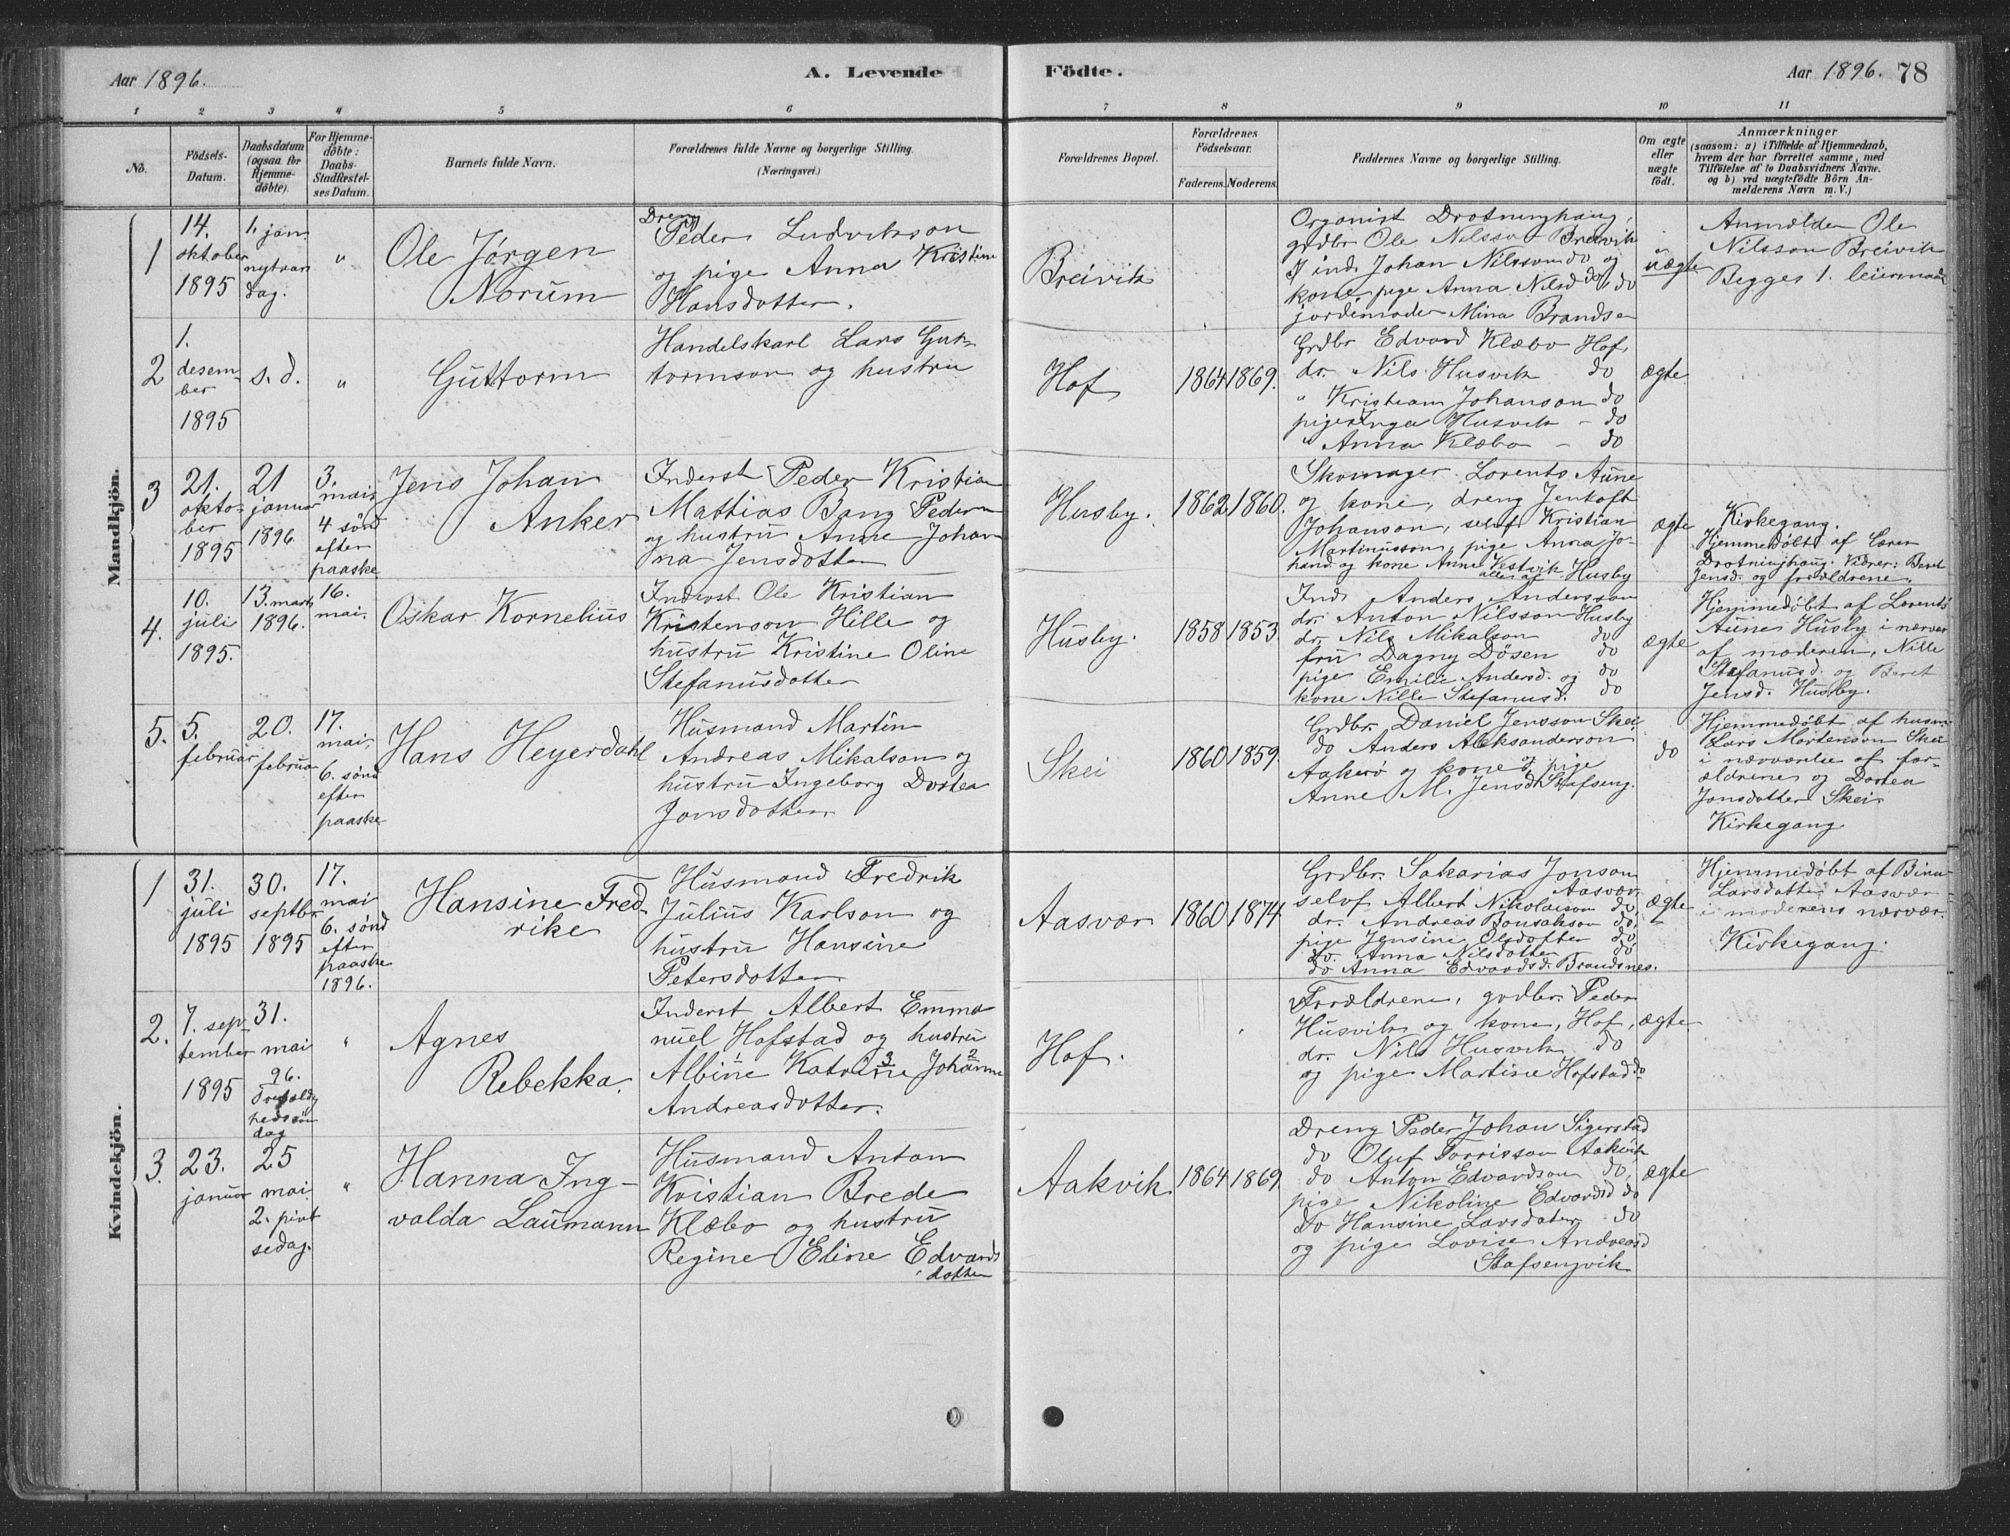 Aar 1896.
A. Levende
1 2 3 4 5 6
No.
Födsels-
Datum.
Daabsdatum
(ogsaa for
Hjemme-
döbte).
For Hjemme-
döbte:
Daabs-
Stadfæstel-
ses Datum.
Barnets fulde Navn.
Forældrenes fulde Navne og borgerlige Stilling.
(Næringsvei.)
Mandkjön.
1
14.
oktober
1895
1. jan
nytaars
dag.
"
Ole Jørgen
Norum
Dreng
Peder Ludvikson
og pige Anna Kristine
Hansdotter.
2
1.
desem-
ber
1895
s. d.
"
Guttorm
Handelskarl Lars Gut-
tormson og hustru
3
21.
okto-
ber
1895
21
januar
1896
3.
mai
4 sønd
efter
paaske
Jens Johan
Anker
Inderst Peder Kristian
Mathias Bang Peders
og hustru Anne Johan
na Jensdotter
4.
10.
juli
1895.
13. marts
1896.
16.
mai.
Oskar Kornelius
Inderst Ole Kristian
Kristenson Hille og
hustru Kristine Oline
Stefanusdotter
5.
5.
februar
20.
februar
17.
mai,
6. sønd
efter
paaske
Hans Heyerdahl
Husmand Martin
Andreas Mikalson og
hustru Ingeborg Dortea
Jonsdotter
Kvindekjön.
1
31.
juli
1895
30.
septbr
1895
17.
mai
6. sønd
efter
paaske
1896.
Hansine Fred-
rike
Husmand Fredrik
Julius Karlson og
hustru Hansine
Petersdotter
2.
7. sep-
tember
1895
31.
mai
96.
Trefoldig
hedssøn
dag
"
Agnes
Rebekka.
Inderst Albert Emma
nuel Hofstad og hustru
Albine Katrine Johanne
Andreasdotter.
3.
23.
januar
25
mai
2. pint
sedag.
"
Hanna Ing-
valda Laumann
Husmand Anton
Kristian Brede
Klæbo og hustru
Regine Eline Edvards
dotter
Födte.
Aar 1896. 78
7 8 9 10 11
Forældrenes Bopæl.
Forældrenes
Födselsaar.
Faderens. Moderens.
Faddernes Navne og borgerlige Stilling.
Om ægte
eller
uægte
födt.
Anmærkninger
(saasom: a) i Tilfælde af Hjemmedaab,
hvem der har forrettet samme, med
Tilföielse af to Daabsvidners Navne.
og b) ved uægtefödte Börn An-
melderens Navn m. V.)
Breivik
Organist Drotninghaug,
grdbr Ole Nilsson Breivik
ind. Johan Nilsson do og
kone, pige Anna Nilsd do
jordemoder Mina Brandse
uægte
Anmelder Ole
Nilsson Breivik
Begges 1. leiermaal
Hof
1864 1869.
Grdbr Edvard Klæbo Hof,
dr. Nils Husvik do
" Kristian Johanson do
pige Inga Husvik - do
" Anna Klæbo - do
ægte
Husby.
1862 1860.
Skomager Lorents Aune
og kone, dreng Jentoft
Johanson, selvf Kristian
Martinusson, pige Anna Jo-
hansd og kone Anne Vestvik
alle af Husby
ægte
Kirkegang.
Hjemmedøbt af Lærer
Drotninghaug. Vidner: Beret
Jensd. og forældrene.
Husby.
1858 1853.
Ind. Anders Andersson
dr. Anton Nilsson Husby
dr. Nils Mikalson do
fru Dagny Døsen do
pige Emilie Andersd. og do
kone Nille Stefanusd. do
ægte
Hjemmedøbt af Lorents
Aune Husby i nærvær
af moderen, Nille
Stefanusd. og Beret
Jensd. Husby.
Skei
1860 1859.
Grdbr. Daniel Jensson Skei
do Anders Aleksanderson
Aakerø og kone og pige
Anne M. Jensd. Stafseng.
do
Hjemmedøbt af husm.
Lars Mortenson Skei
i nærværelse af for-
ældrene og Dortea
Jonsdotter Skei.
Kirkegang
Aasvær
1860 1874
Grdbr. Sakarias Jonson
Aasvær
selvf Albert Nikolaison do,
dr. Andreas Bonsakson do,
pige Jensine Olsdotter do,
do. Anna Nilsdotter do
do Anna Edvardsd. Brandsnes.
ægte
Hjemmedøbt af Bina
Larsdotter Aasvær
i moderens nærvær.
Kirkegang.
Hof.
Forældrene, grdbr. Peder
Husvik og kone, Hof,
dr. Nils Husvik do
og pige Martine Hofstad do
ægte
Aakvik
1864 1869
Dreng Peder Johan Sigerstad
do Oluf Torrisson Aakvik
do Anton Edvardson do,
pige Nikoline Edvardsd do
do Hansine Larsdater do
og pige Lovise Andreasd
Stafsengvik
ægte